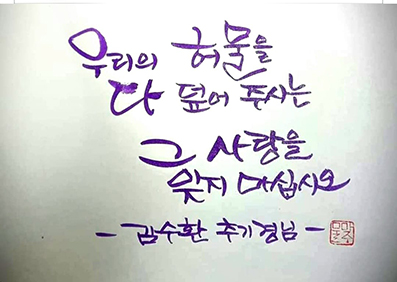 우리의 허물을
다 덮어 주시는
그 사랑을
잊지 마십시오
- 김수환 추기경님 -